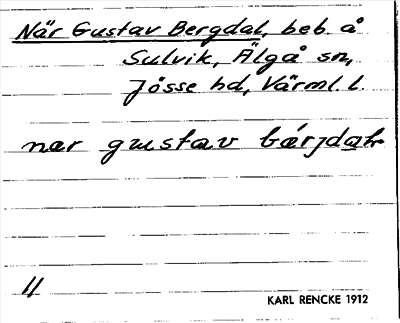 När Gustav Bergdal, beb. å
Sulvik, Älgå sn,
Jösse hd, Värml. l.
nær gustav
11
KARL RENCKE 1912